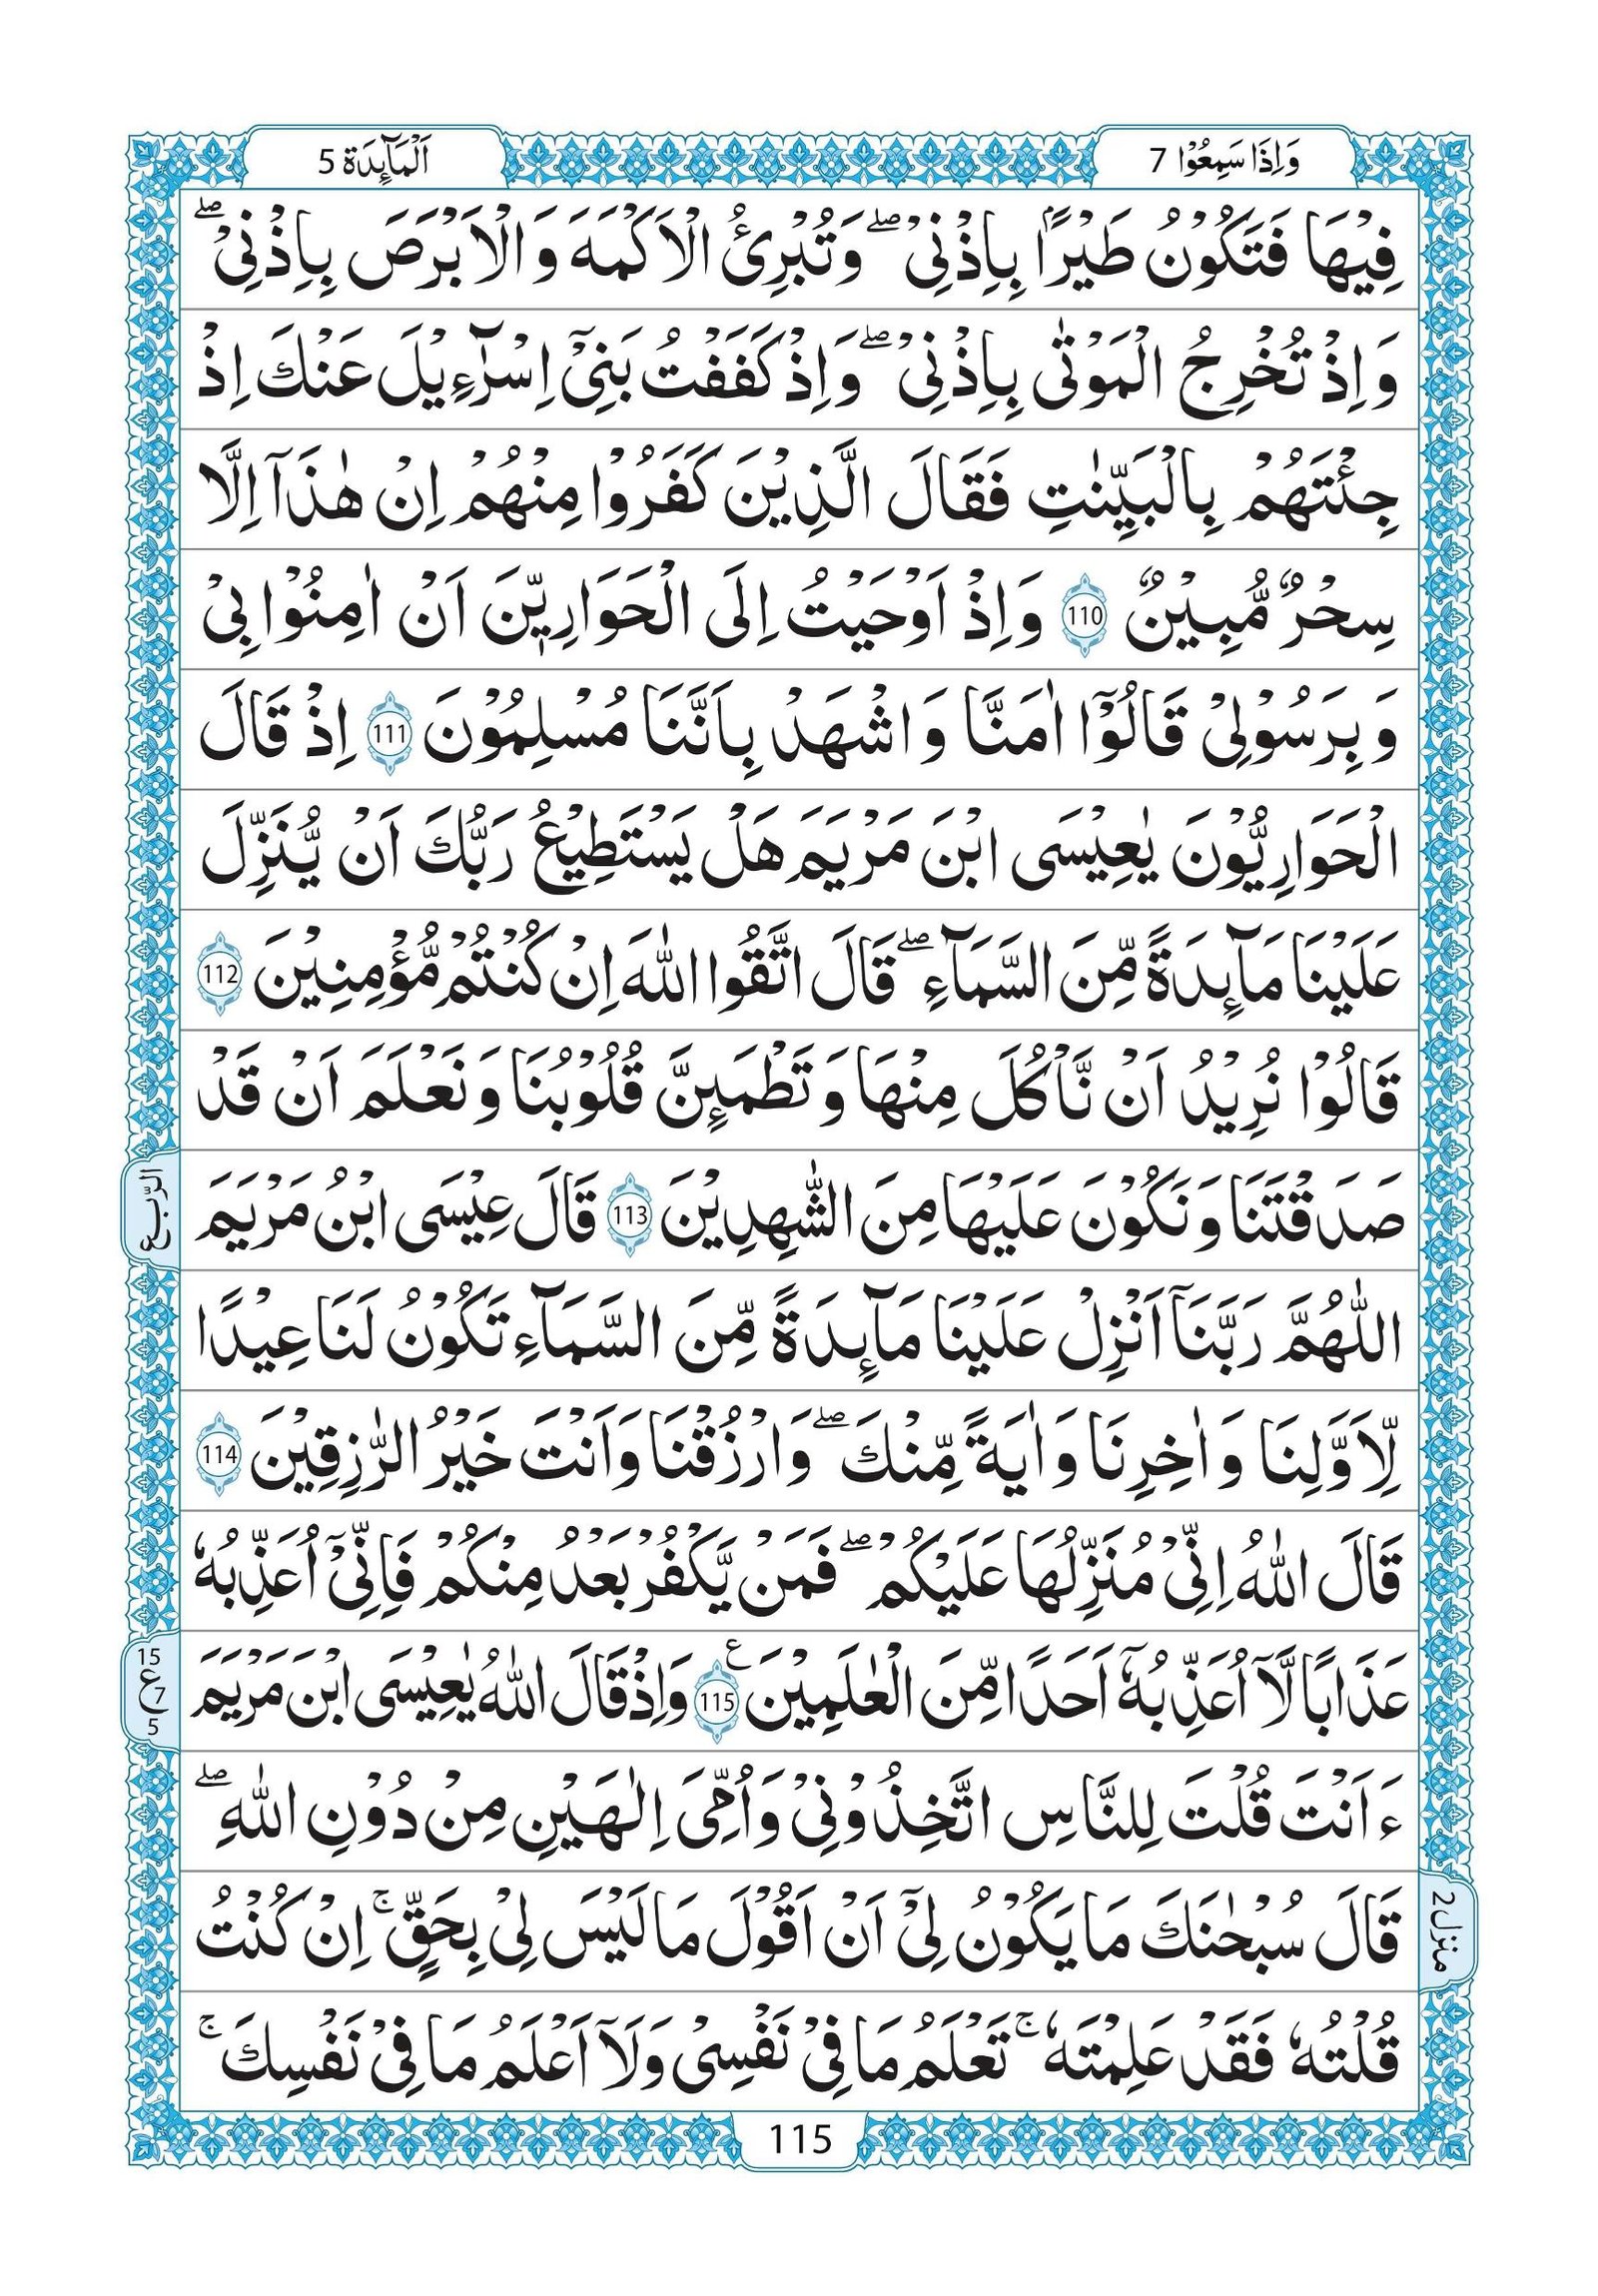 وَاِذَا سَمِعُوْا 7
اَلْمَآئِدَة 5
فِيْهَا فَتَكُوْنُ طَيْرًاۢ بِاِذْنِىْ ۖ وَتُبْرِئُ الْاَكْمَهَ وَالْاَبْرَصَ بِاِذْنِىْ ۖ
وَاِذْ تُخْرِجُ الْمَوْتٰى بِاِذْنِىْ ۖ وَاِذْ كَفَفْتُ بَنِىْٓ اِسْرَآءِيْلَ عَنْكَ اِذْ
جِئْتَهُمْ بِالْبَيِّنٰتِ فَقَالَ الَّذِيْنَ كَفَرُوْا مِنْهُمْ اِنْ هٰذَآ اِلَّا
سِحْرٌ مُّبِيْنٌ 110 وَاِذْ اَوْحَيْتُ اِلَى الْحَوَارِيّٖنَ اَنْ اٰمِنُوْا بِىْ
وَبِرَسُوْلِىْ قَالُوْٓا اٰمَنَّا وَاشْهَدْ بِاَنَّنَا مُسْلِمُوْنَ 111 اِذْ قَالَ
الْحَوَارِيُّوْنَ يٰعِيْسَى ابْنَ مَرْيَمَ هَلْ يَسْتَطِيْعُ رَبُّكَ اَنْ يُّنَزِّلَ
عَلَيْنَا مَآئِدَةً مِّنَ السَّمَآءِ ۖ قَالَ اتَّقُوا اللّٰهَ اِنْ كُنْتُمْ مُّؤْمِنِيْنَ 112
قَالُوْا نُرِيْدُ اَنْ نَّاْكُلَ مِنْهَا وَتَطْمَئِنَّ قُلُوْبُنَا وَنَعْلَمَ اَنْ قَدْ
صَدَقْتَنَا وَنَكُوْنَ عَلَيْهَا مِنَ الشّٰهِدِيْنَ 113 قَالَ عِيْسَى ابْنُ مَرْيَمَ
الرّبع
اللّٰهُمَّ رَبَّنَآ اَنْزِلْ عَلَيْنَا مَآئِدَةً مِّنَ السَّمَآءِ تَكُوْنُ لَنَا عِيْدًا
لِّاَوَّلِنَا وَاٰخِرِنَا وَاٰيَةً مِّنْكَ ۖ وَارْزُقْنَا وَاَنْتَ خَيْرُ الرّٰزِقِيْنَ 114
قَالَ اللّٰهُ اِنِّىْ مُنَزِّلُهَا عَلَيْكُمْ ۖ فَمَنْ يَّكْفُرْ بَعْدُ مِنْكُمْ فَاِنِّىْٓ اُعَذِّبُهٗ
عَذَابًا لَّآ اُعَذِّبُهٗٓ اَحَدًا مِّنَ الْعٰلَمِيْنَ ع 115 وَاِذْ قَالَ اللّٰهُ يٰعِيْسَى ابْنَ مَرْيَمَ
15 ع 7 5
ءَاَنْتَ قُلْتَ لِلنَّاسِ اتَّخِذُوْنِىْ وَاُمِّىَ اِلٰهَيْنِ مِنْ دُوْنِ اللّٰهِ ۖ
قَالَ سُبْحٰنَكَ مَا يَكُوْنُ لِىْٓ اَنْ اَقُوْلَ مَا لَيْسَ لِىْ بِحَقٍّ ۚ اِنْ كُنْتُ
منزل 2
قُلْتُهٗ فَقَدْ عَلِمْتَهٗ ۚ تَعْلَمُ مَا فِىْ نَفْسِىْ وَلَآ اَعْلَمُ مَا فِىْ نَفْسِكَ ۚ
115